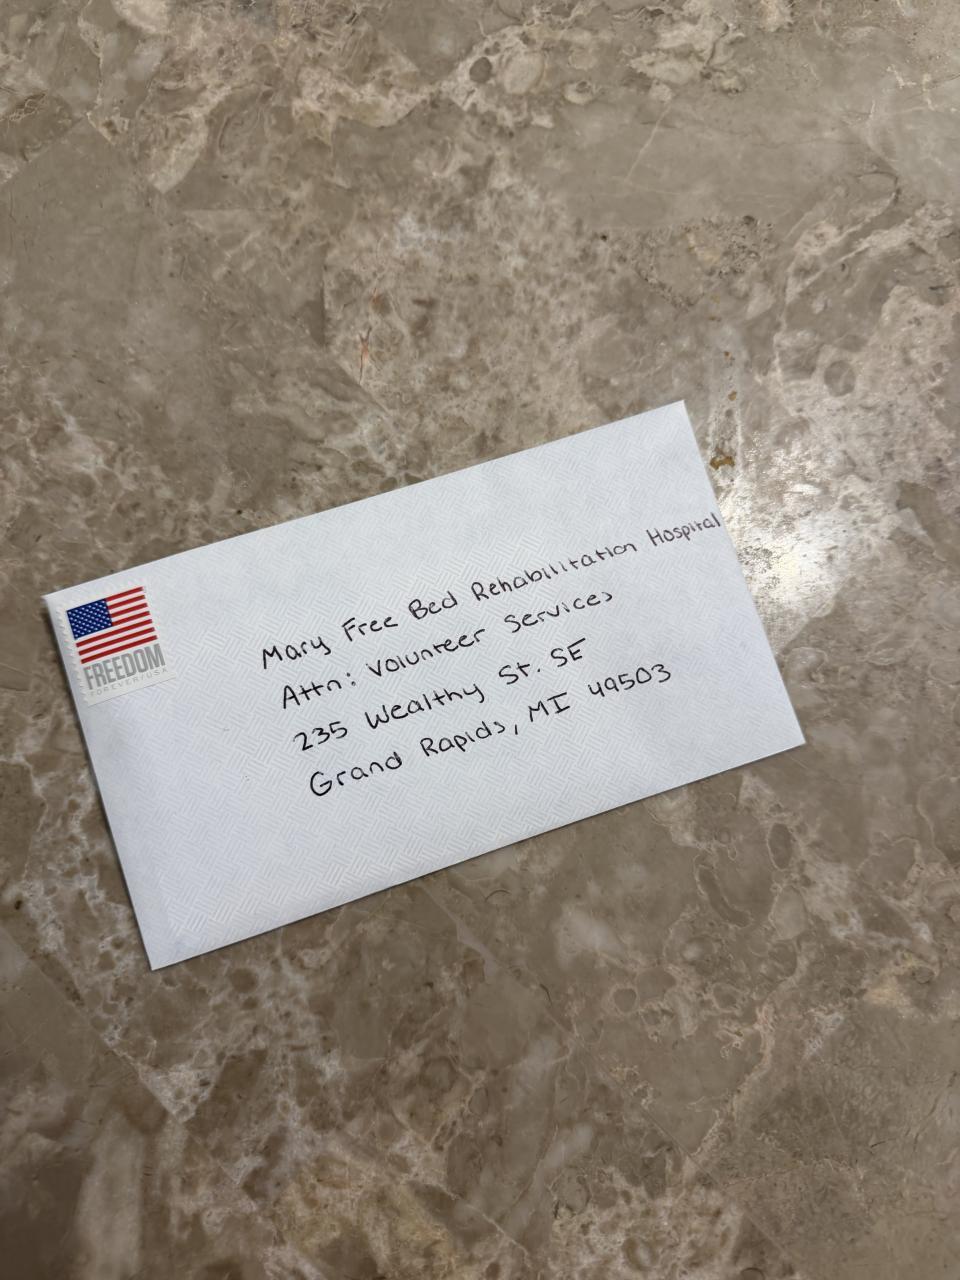 FREEDOM
FOREVER/USA
Mary Free Bed Rehabilitation Hospital
Attn: Volunteer Services
235 Wealthy St. SE
Grand Rapids, MI 49503